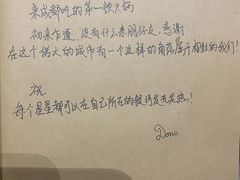 来成都吃的第一顿火锅
初来乍道，没有什么亲朋好友，感谢
在这个偌大的城市有一个这样的角落属于相似的我们！
祝
每个星星都可以在自己所在的银河发光发热！
Dono